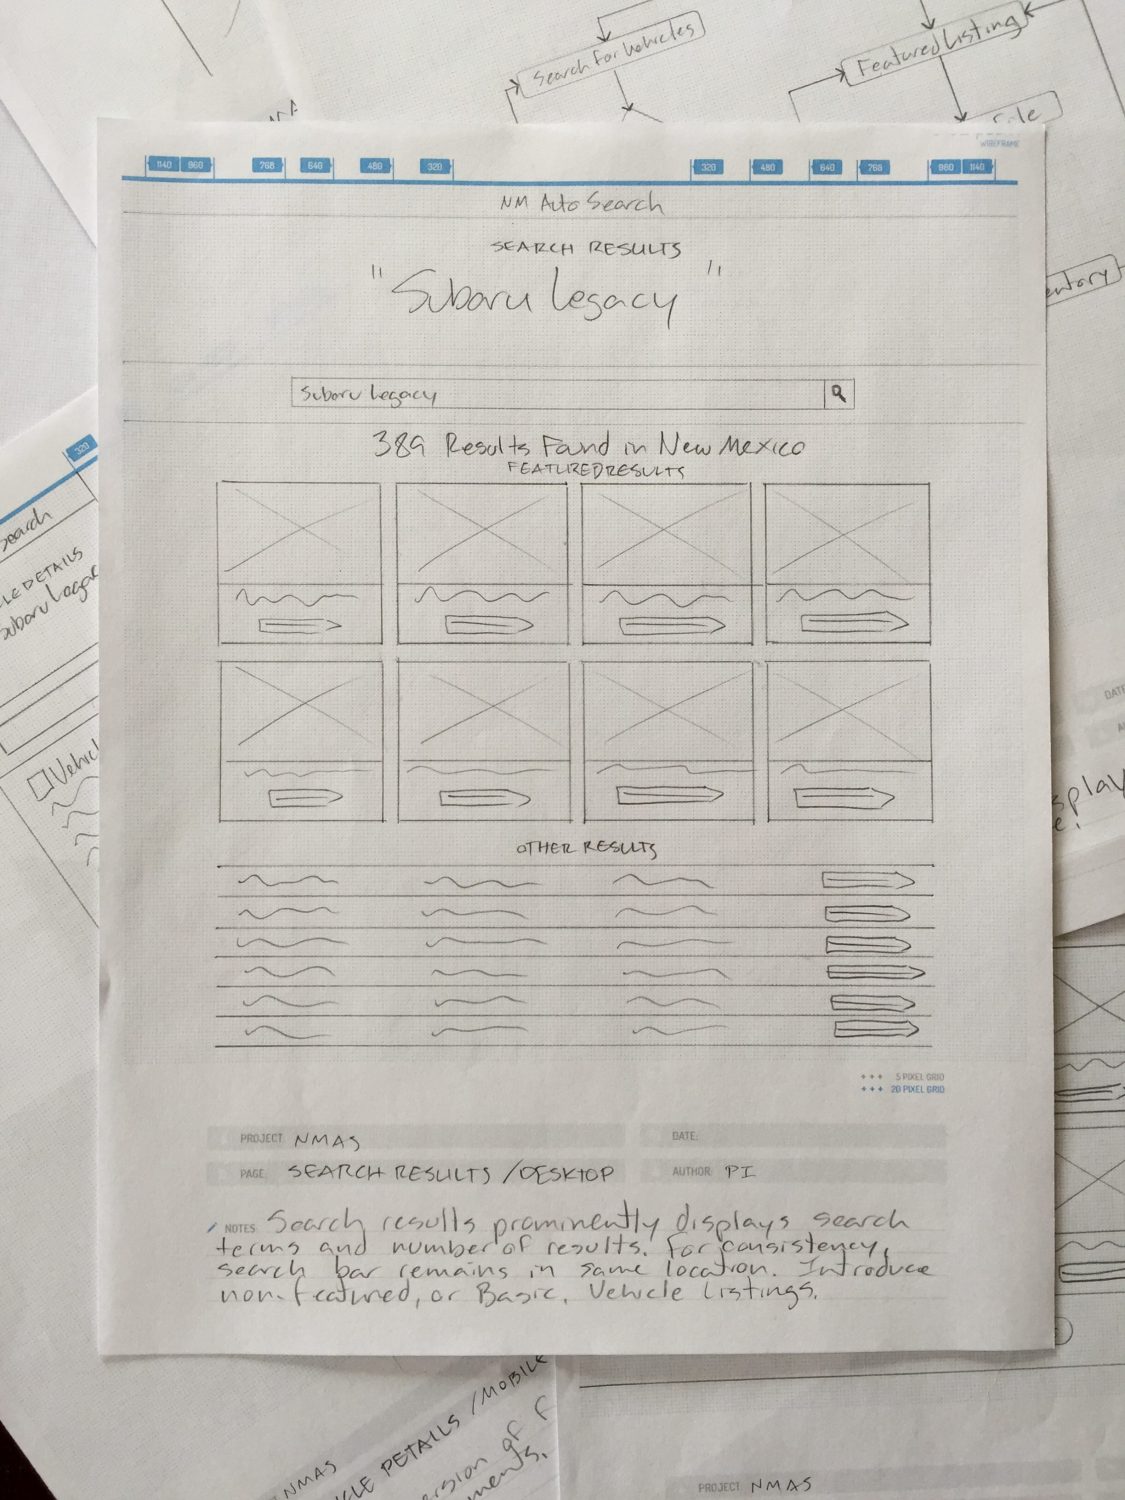 Search For Vehicles
Featured Listing
WIREFRAME
1140 960 768 640 480 320 320 480 640 768 960 1140
NM Auto Search
SEARCH RESULTS
"Subaru Legacy"
Subaru Legacy
389 Results Found in New Mexico
FEATURED RESULTS
OTHER RESULTS
5 PIXEL GRID
20 PIXEL GRID
PROJECT: NMAS
DATE:
PAGE: SEARCH RESULTS / DESKTOP
AUTHOR: PI
NOTES: Search results prominently displays search
terms and number of results. For consistency,
search bar remains in same location. Introduce
non-featured, or Basic, Vehicle Listings.
320
Search
DETAILS
Subaru Legac
Vehic
entory
DATE:
splay
NMAS
DETAILS / MOBILE
ersion of
ments.
PROJECT: NMAS